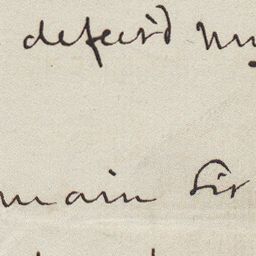 defer'd my
main Sir